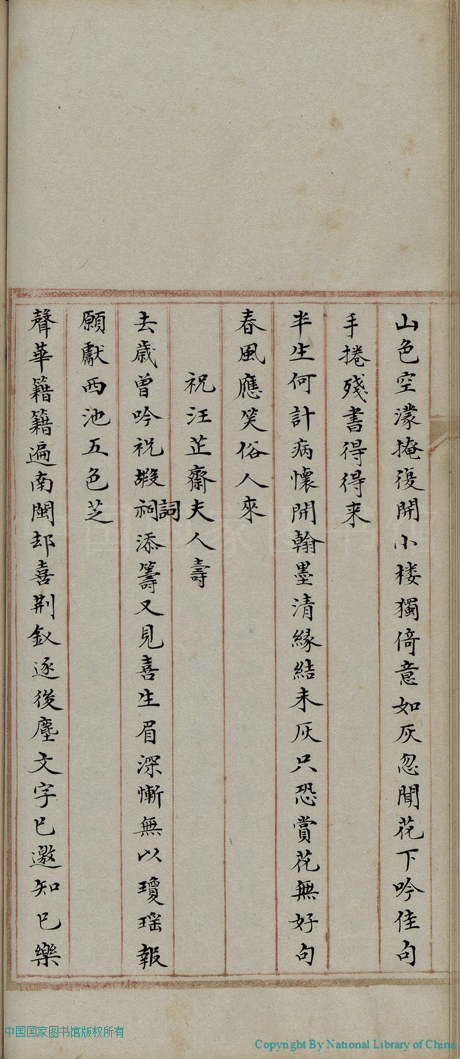 山色空濛掩復開小樓獨倚意如灰忽聞花下吟佳句
手捲殘書得得来
半生何計病懷開翰墨清緣結未灰只恐賞花無好句
春風應笑俗人來
祝汪芷齋夫人壽
去歲曾吟祝嘏祠詞添籌又見喜生眉深慚無以瓊瑶報
願獻西池五色芝
聲華籍籍遍南閩却喜荆釵逐後塵文字已邀知己樂
中国国家图书馆版权所有
Copyright By National Library of China